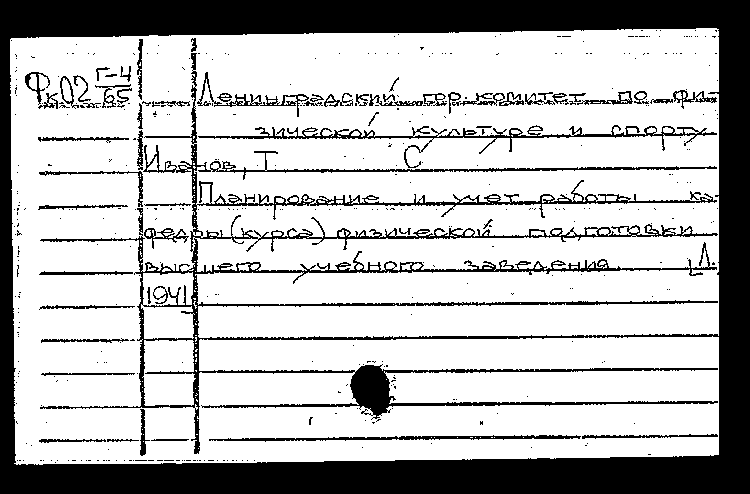 Фк02 Г-4/65
Ленинградский гор. комитет по фи-
зической культуре и спорту
Иванов, Т С
Планирование и учет работы ка-
федры (курса) физической подготовки
высшего учебного заведения. [Л.,
1941].